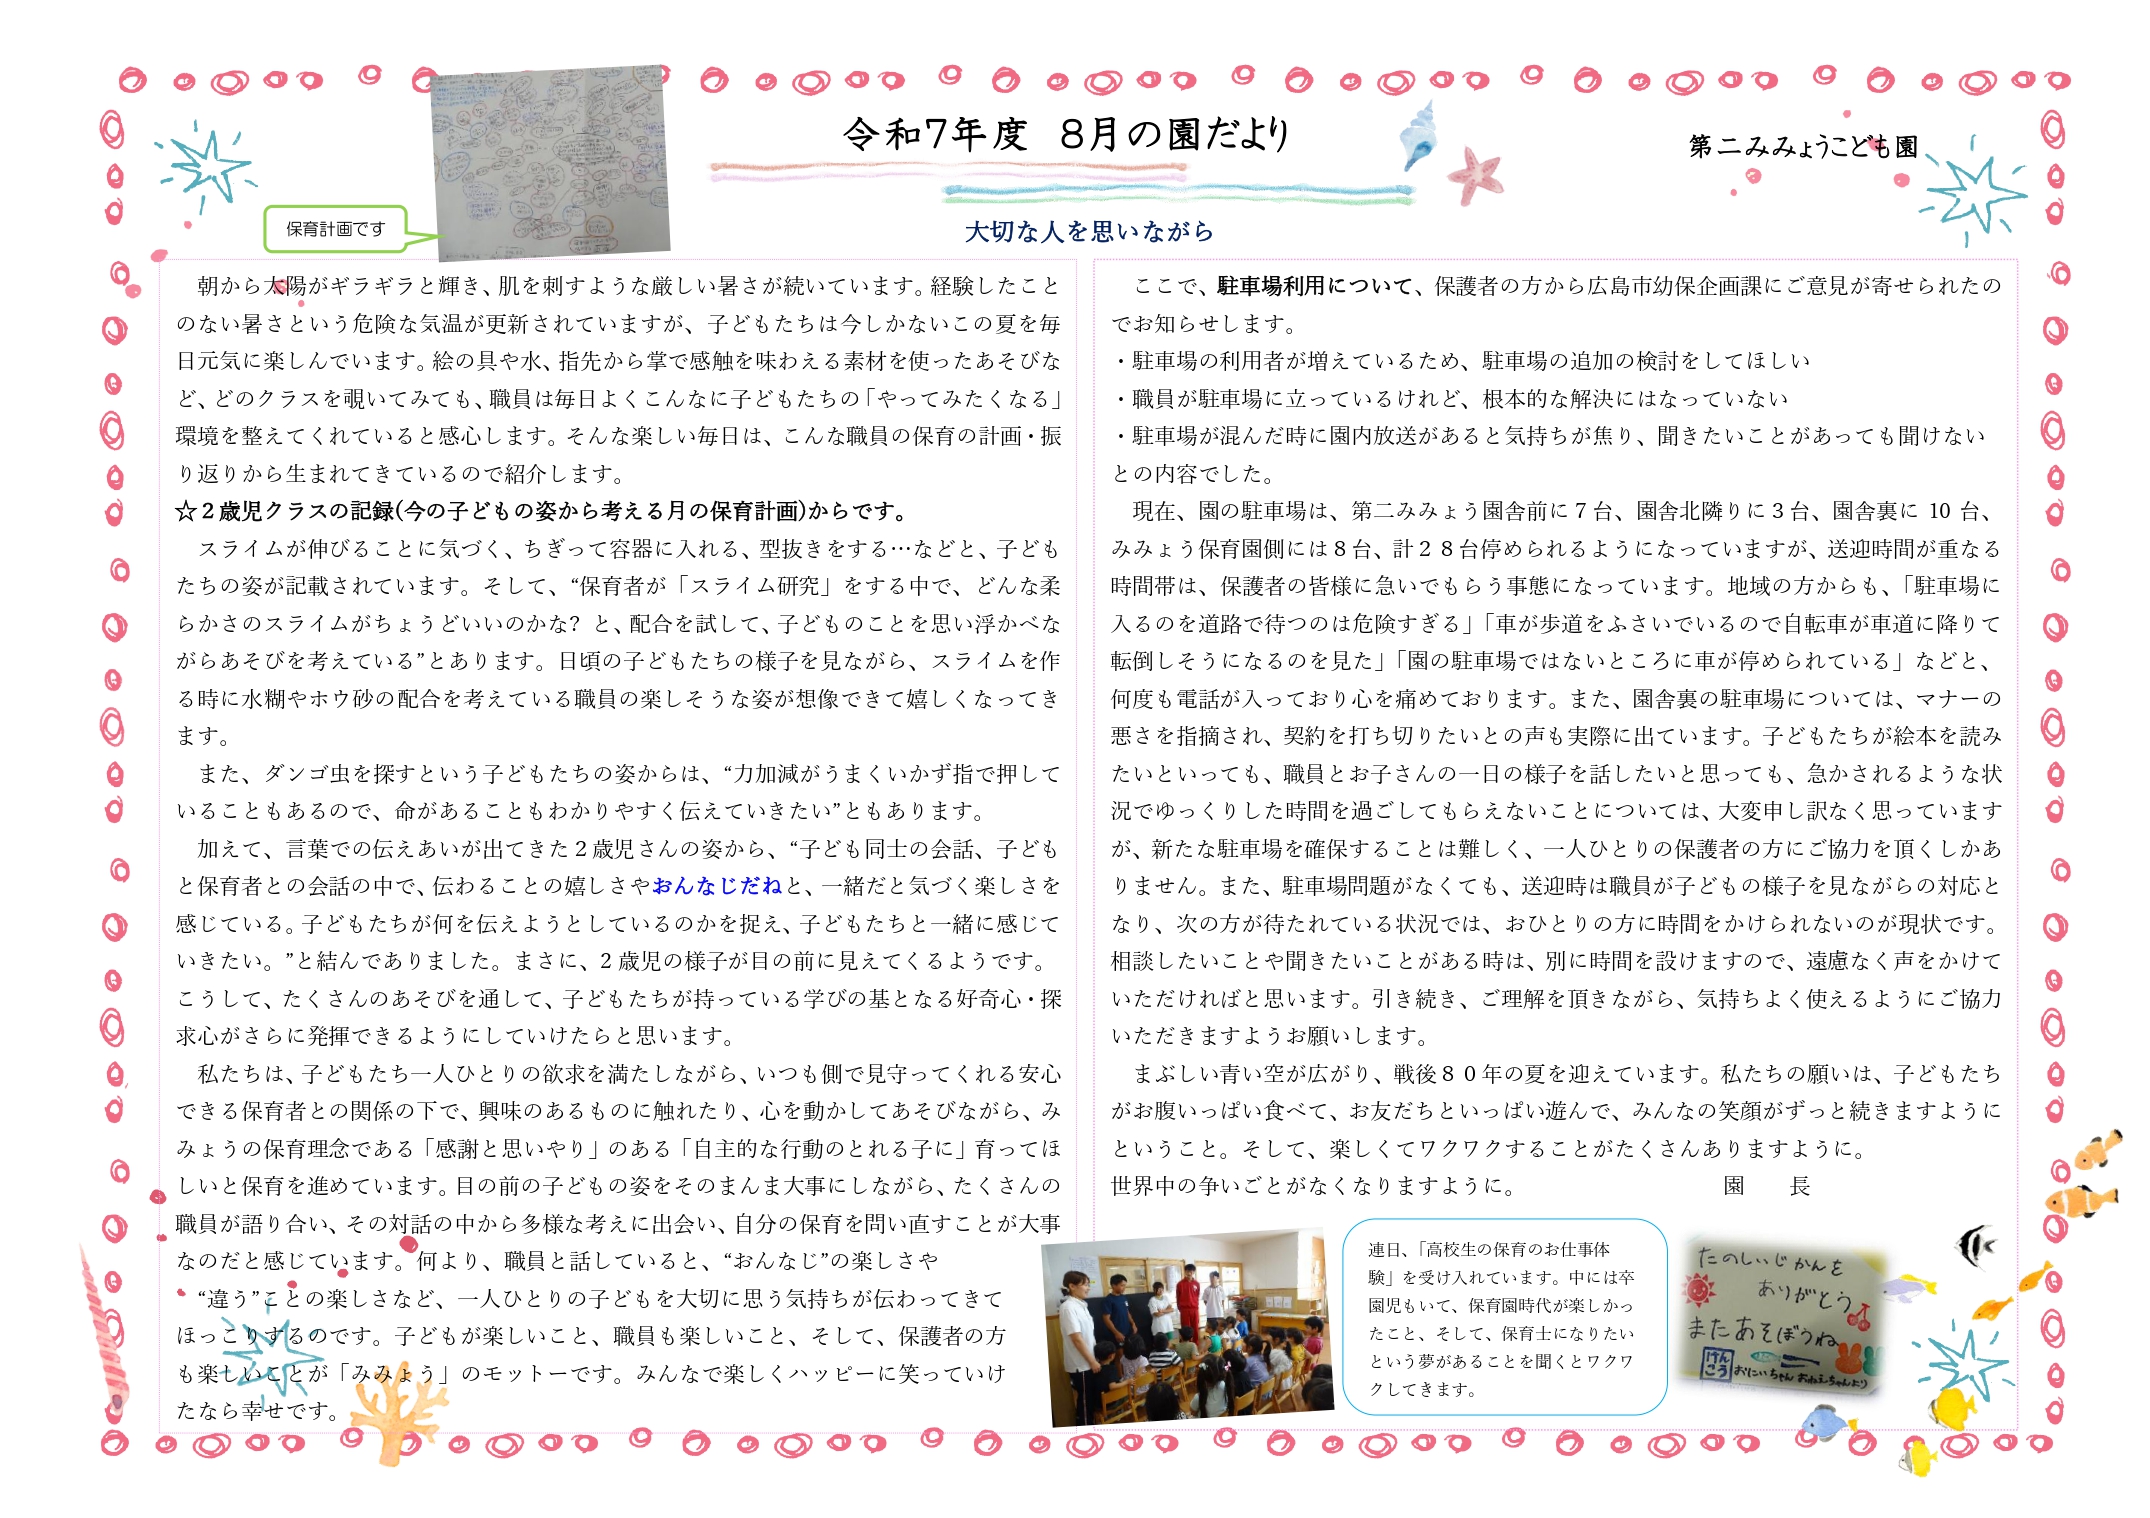 令和7年度　8月の園だより
第二みみょうこども園
保育計画です
大切な人を思いながら
朝から太陽がギラギラと輝き、肌を刺すような厳しい暑さが続いています。経験したこと
のない暑さという危険な気温が更新されていますが、子どもたちは今しかないこの夏を毎
日元気に楽しんでいます。絵の具や水、指先から掌で感触を味わえる素材を使ったあそびな
ど、どのクラスを覗いてみても、職員は毎日よくこんなに子どもたちの「やってみたくなる」
環境を整えてくれていると感心します。そんな楽しい毎日は、こんな職員の保育の計画・振
り返りから生まれてきているので紹介します。
☆２歳児クラスの記録(今の子どもの姿から考える月の保育計画)からです。
スライムが伸びることに気づく、ちぎって容器に入れる、型抜きをする…などと、子ども
たちの姿が記載されています。そして、“保育者が「スライム研究」をする中で、どんな柔
らかさのスライムがちょうどいいのかな？と、配合を試して、子どものことを思い浮かべな
がらあそびを考えている”とあります。日頃の子どもたちの様子を見ながら、スライムを作
る時に水糊やホウ砂の配合を考えている職員の楽しそうな姿が想像できて嬉しくなってき
ます。
また、ダンゴ虫を探すという子どもたちの姿からは、“力加減がうまくいかず指で押して
いることもあるので、命があることもわかりやすく伝えていきたい”ともあります。
加えて、言葉での伝えあいが出てきた２歳児さんの姿から、“子ども同士の会話、子ども
と保育者との会話の中で、伝わることの嬉しさやおんなじだねと、一緒だと気づく楽しさを
感じている。子どもたちが何を伝えようとしているのかを捉え、子どもたちと一緒に感じて
いきたい。”と結んでありました。まさに、２歳児の様子が目の前に見えてくるようです。
こうして、たくさんのあそびを通して、子どもたちが持っている学びの基となる好奇心・探
求心がさらに発揮できるようにしていけたらと思います。
私たちは、子どもたち一人ひとりの欲求を満たしながら、いつも側で見守ってくれる安心
できる保育者との関係の下で、興味のあるものに触れたり、心を動かしてあそびながら、み
みょうの保育理念である「感謝と思いやり」のある「自主的な行動のとれる子に」育ってほ
しいと保育を進めています。目の前の子どもの姿をそのまんま大事にしながら、たくさんの
職員が語り合い、その対話の中から多様な考えに出会い、自分の保育を問い直すことが大事
なのだと感じています。何より、職員と話していると、“おんなじ”の楽しさや
“違う”ことの楽しさなど、一人ひとりの子どもを大切に思う気持ちが伝わってきて
ほっこりするのです。子どもが楽しいこと、職員も楽しいこと、そして、保護者の方
も楽しいことが「みみょう」のモットーです。みんなで楽しくハッピーに笑っていけ
たなら幸せです。
ここで、駐車場利用について、保護者の方から広島市幼保企画課にご意見が寄せられたの
でお知らせします。
・駐車場の利用者が増えているため、駐車場の追加の検討をしてほしい
・職員が駐車場に立っているけれど、根本的な解決にはなっていない
・駐車場が混んだ時に園内放送があると気持ちが焦り、聞きたいことがあっても聞けない
との内容でした。
現在、園の駐車場は、第二みみょう園舎前に７台、園舎北隣りに３台、園舎裏に 10 台、
みみょう保育園側には８台、計２８台停められるようになっていますが、送迎時間が重なる
時間帯は、保護者の皆様に急いでもらう事態になっています。地域の方からも、「駐車場に
入るのを道路で待つのは危険すぎる」「車が歩道をふさいでいるので自転車が車道に降りて
転倒しそうになるのを見た」「園の駐車場ではないところに車が停められている」などと、
何度も電話が入っており心を痛めております。また、園舎裏の駐車場については、マナーの
悪さを指摘され、契約を打ち切りたいとの声も実際に出ています。子どもたちが絵本を読み
たいといっても、職員とお子さんの一日の様子を話したいと思っても、急かされるような状
況でゆっくりした時間を過ごしてもらえないことについては、大変申し訳なく思っています
が、新たな駐車場を確保することは難しく、一人ひとりの保護者の方にご協力を頂くしかあ
りません。また、駐車場問題がなくても、送迎時は職員が子どもの様子を見ながらの対応と
なり、次の方が待たれている状況では、おひとりの方に時間をかけられないのが現状です。
相談したいことや聞きたいことがある時は、別に時間を設けますので、遠慮なく声をかけて
いただければと思います。引き続き、ご理解を頂きながら、気持ちよく使えるようにご協力
いただきますようお願いします。
まぶしい青い空が広がり、戦後８０年の夏を迎えています。私たちの願いは、子どもたち
がお腹いっぱい食べて、お友だちといっぱい遊んで、みんなの笑顔がずっと続きますように
ということ。そして、楽しくてワクワクすることがたくさんありますように。
世界中の争いごとがなくなりますように。　園　長
連日、「高校生の保育のお仕事体
験」を受け入れています。中には卒
園児もいて、保育園時代が楽しかっ
たこと、そして、保育士になりたい
という夢があることを聞くとワクワ
クしてきます。
たのしいじかんを
ありがとう
またあそぼうね
けんこう おにいちゃん おねえちゃんより